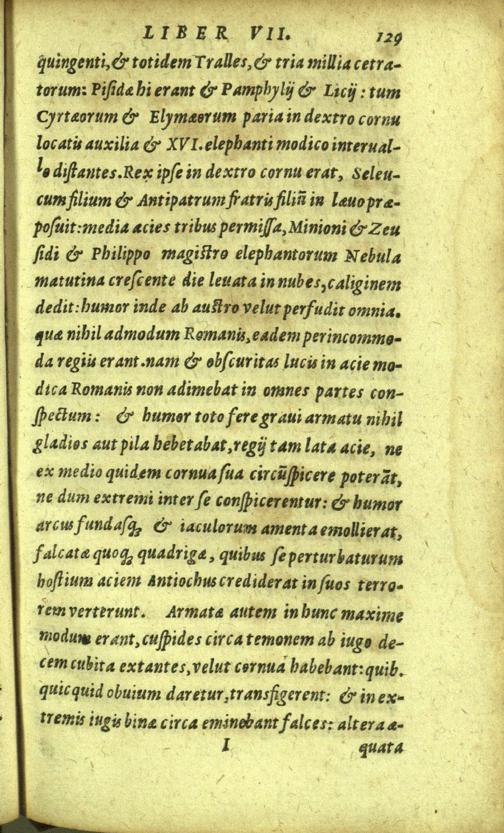 LIBER VII. 129
quingenti, & totidem Tralles, & tria millia cetra-
torum: Pisidæ hi erant & Pamphylij & Licij: tum
Cyrtæorum & Elymæorum paria in dextro cornu
locatis auxilia & XVI. elephanti modico interual-
lo distantes. Rex ipse in dextro cornu erat, Seleu-
cum filium & Antipatrum fratris filiũ in læuo præ-
posuit: media acies tribus permissa, Minioni & Zeu
sidi & Philippo magistro elephantorum Nebula
matutina crescente die leuata in nubes, caliginem
dedit: humor inde ab austro velut perfudit omnia.
quæ nihil admodum Romanis, eadem perincommo-
da regiis erant. nam & obscuritas lucis in acie mo-
dica Romanis non adimebat in omnes partes con-
spectum: & humor toto fere graui armatu nihil
gladios aut pila hebetabat, regij tam lata acie, ne
ex medio quidem cornua sua circũspicere poterãt,
ne dum extremi inter se conspicerentur: & humor
arcus fundasq; & iaculorum amenta emollierat,
falcatæ quoq; quadrigæ, quibus se perturbaturum
hostium aciem Antiochus crediderat in suos terro-
rem verterunt. Armatæ autem in hunc maxime
modum erant, cuspides circa temonem ab iugo de-
cem cubita extantes, velut cornua habebant: quib.
quicquid obuium daretur, transfigerent: & in ex-
tremis iugis binæ circa eminebant falces: altera æ-
I quata